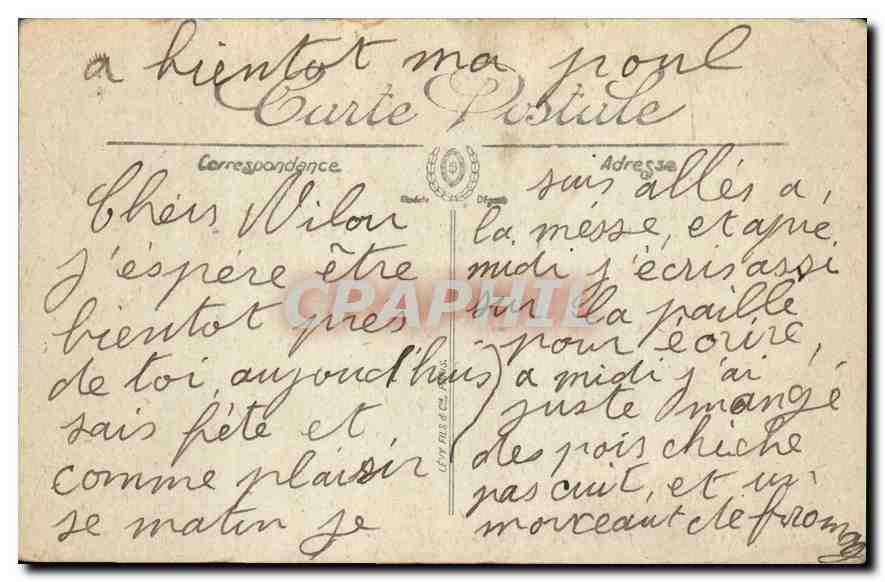 a bientot ma poul
Carte Postale
Correspondance
Adresse
Chérs Nilou
j'éspére être
bientot près
de toi aujourd'huis
sais fête et
comme plaisir
se matin je
suis allés a
la mésse, et aprè
midi j'écris assi
sur la paille
pour écrire,
a midi j'ai
juste mangé
des pois chiche
pas cuit, et un
morceaut de fromag
LÉVY FILS & Cie, PARIS.
CRAPHIL